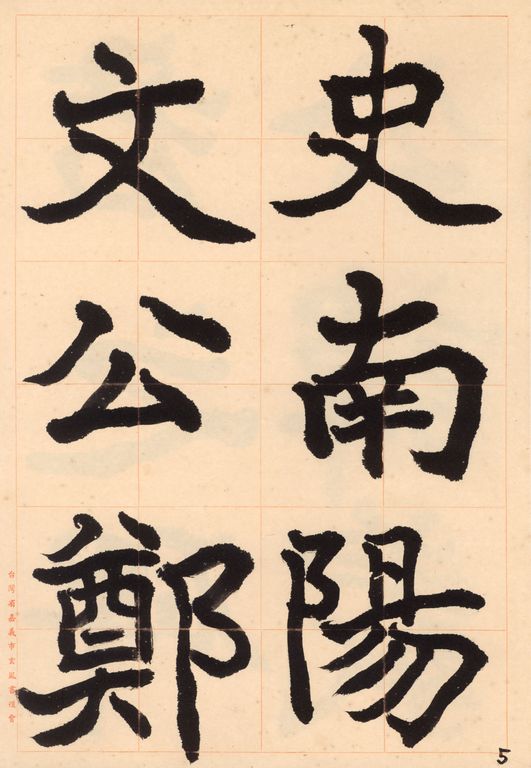 史南陽
文公鄭
台灣省嘉義市玄風書道會
5